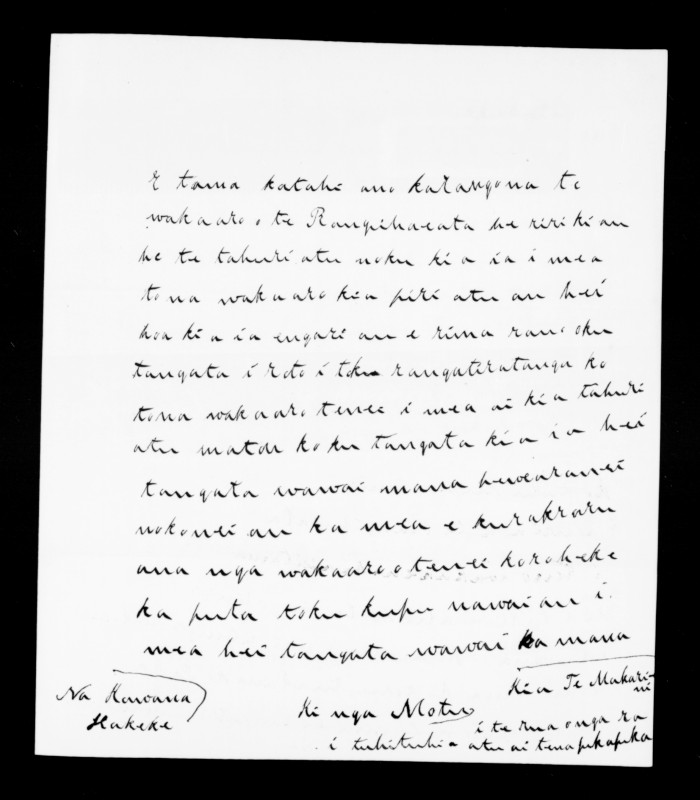 E tama katahi ano karangona te
wakaaro o te Rangihaeata he ririki au
he te tahuri atu noku kia ia i mea
tona wakaaro kia piri atu au hei
hoa kia ia engari au e rima rau o oku
tangata i roto i toku rangatiratanga ko
tona wakaaro tenei i mea ai kia tahuri
atu matou ko ku tangata kia ia hei
tangata wawai mana
nokonei au ka mea e kurakraru
ana nga wakaaro o tenei koroheke
ka puta toku kupu nawai au i
mea hei tangata wawai ka mana
Na Kawana
Hakeke
Kia Te Makari-
ni
Ki nga Motu
i te rua o nga ra
i tuhituhia atu ai tena pukapuka